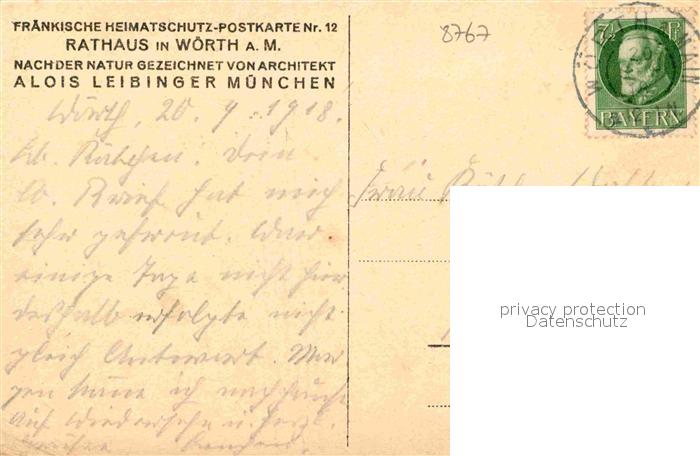 FRÄNKISCHE HEIMATSCHUTZ-POSTKARTE Nr. 12
RATHAUS IN WÖRTH A. M.
NACH DER NATUR GEZEICHNET VON ARCHITEKT
ALOIS LEIBINGER MÜNCHEN
8767
7½ Pf
BAYERN
WÖRTH MAIN
Wörth, 20. 9. 1918.
Lb. Käthchen! Dein
lb. Brief hat mich
sehr gefreut. War
einige Tage nicht hier
deshalb erfolgte nicht
gleich Antwort.
ich
auf Wiedersehn u. herzl.
Frau
privacy protection
Datenschutz